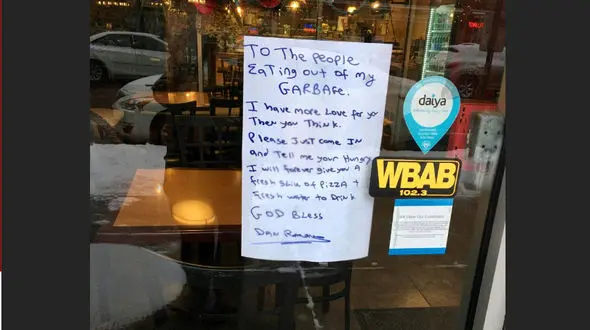 To The People
EaTing out of my
GARBAGE.
I have more Love for yo
Then you Think.
Please Just come IN
and Tell me your Hungry
I will forever give you A
fresh Slice of PizzA +
Fresh water to Drink
GOD Bless
Dan
daiya
WBAB
102.3